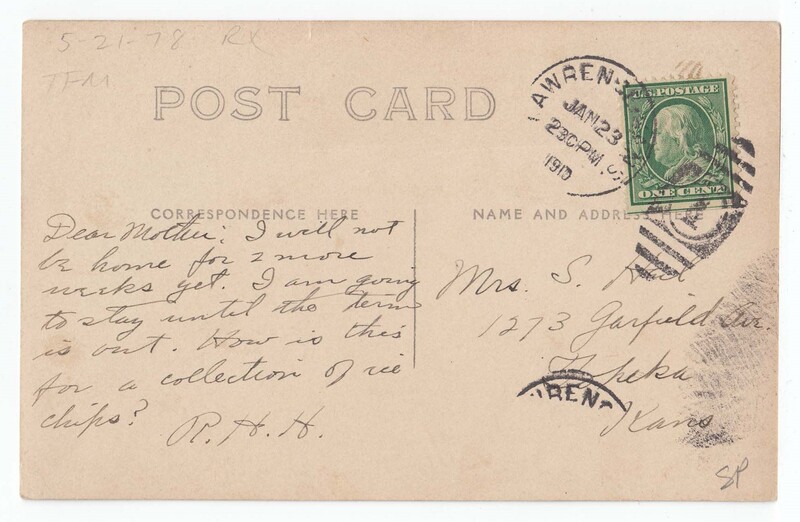 5-21-78 RX
TFM
POST CARD
LAWRENCE
JAN 23
230 PM
1910
U.S. POSTAGE
ONE CENT
CORRESPONDENCE HERE
NAME AND ADDRESS HERE
Dear Mother: I will not
be home for 2 more
weeks yet. I am going
to stay until the term
is out. How is this
for a collection of ice
chips?
R. H. H.
Mrs. S.
1273 Garfield Ave.
Topeka
Kans
WRENC
SP